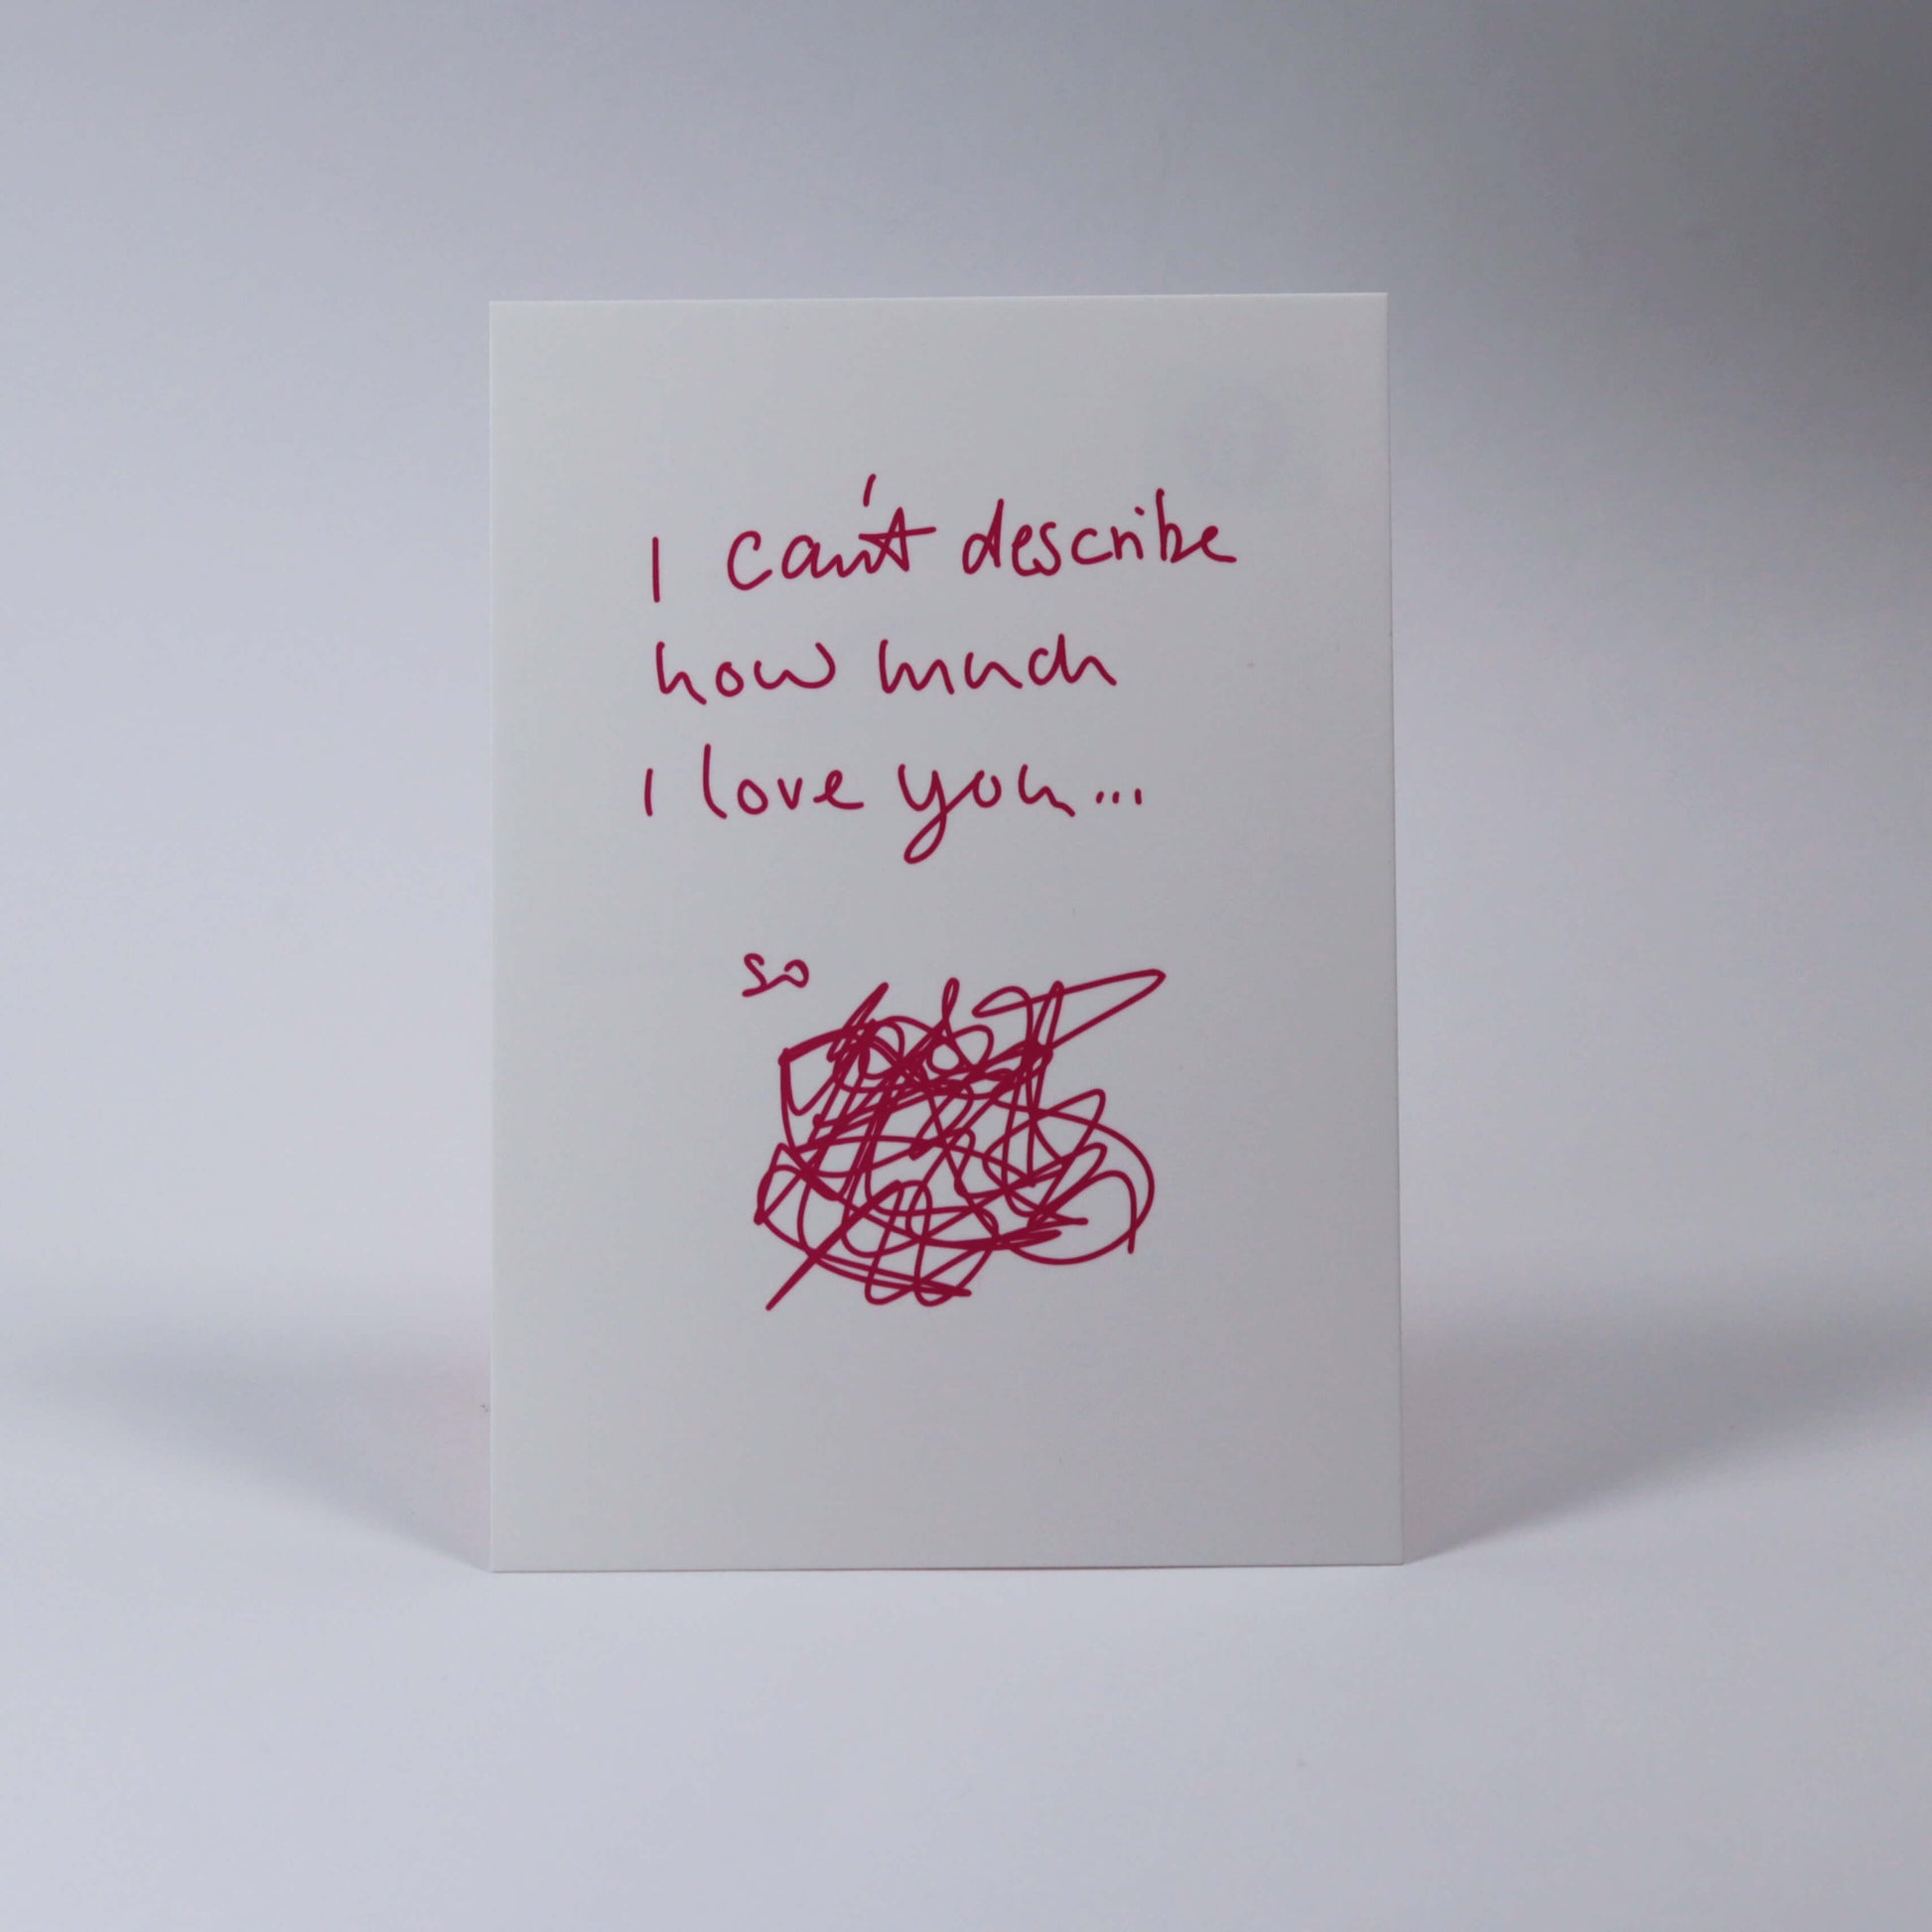 I can't describe
how much
I love you...
so